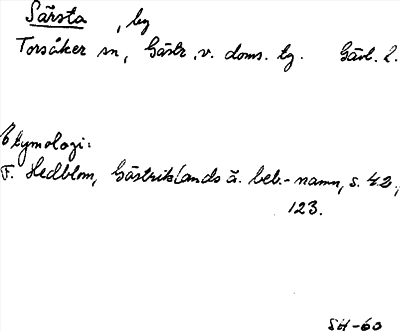 Särsta, by
Torsåker sn, Gästr. v. doms. tg. Gävl. l.
Etymologi:
F. Hedblom, Gästriklands ä. beb.-namn, s. 42,
123.
SH-60